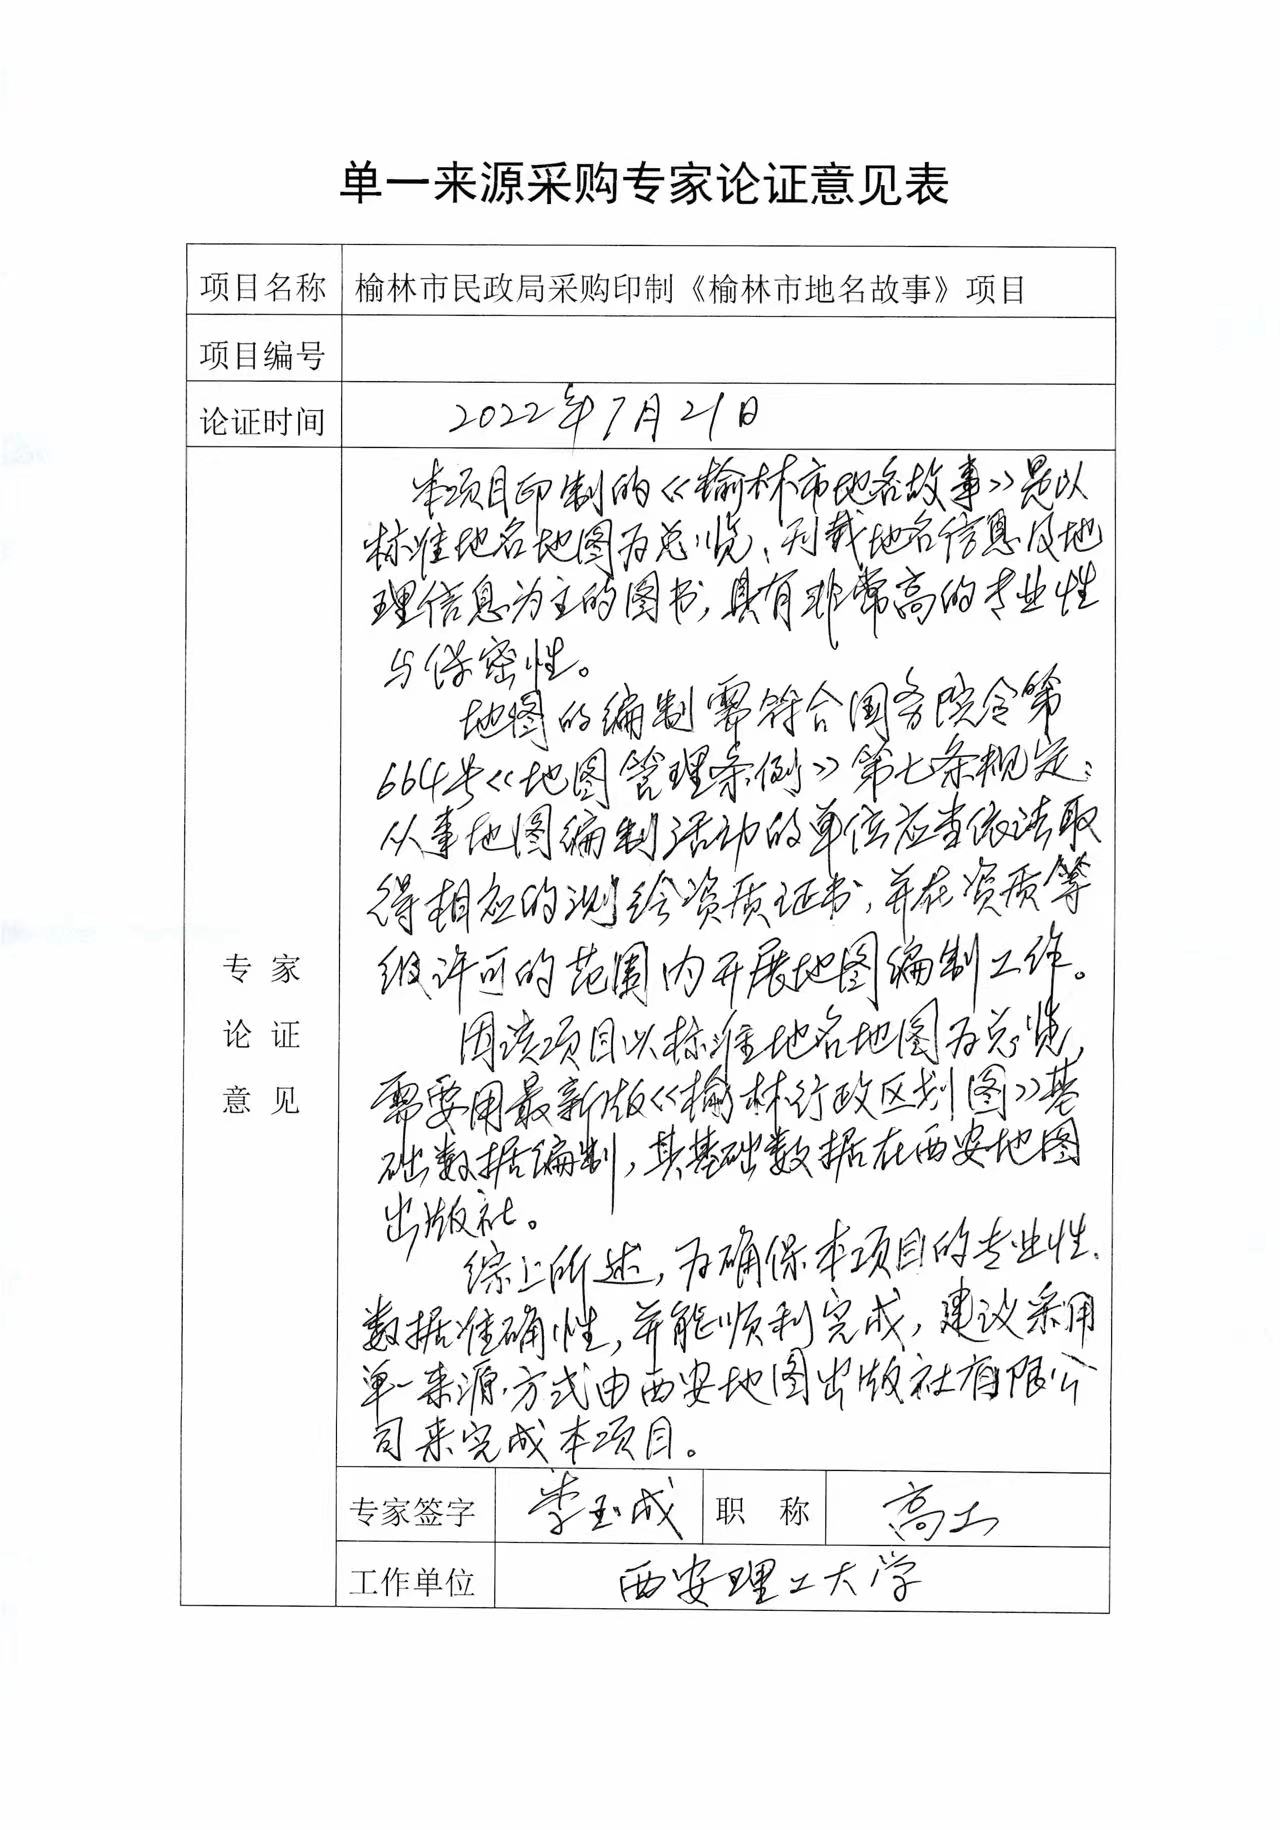 单一来源采购专家论证意见表
项目名称 榆林市民政局采购印制《榆林市地名故事》项目
项目编号
论证时间 2022年7月21日
专家
论证
意见
本项目印制的《榆林市地名故事》是以
标准地名地图为总览、刊载地名信息及地
理信息为主的图书,具有非常高的专业性
与保密性。
地图的编制需符合国务院令第
664号《地图管理条例》第七条规定:
从事地图编制活动的单位应当依法取
得相应的测绘资质证书,并在资质等
级许可的范围内开展地图编制工作。
因该项目以标准地名地图为总览,
需要用最新版《榆林行政区划图》基
础数据编制,其基础数据在西安地图
出版社。
综上所述,为确保本项目的专业性、
数据准确性,并能顺利完成,建议采用
单一来源方式由西安地图出版社有限公
司来完成本项目。
专家签字 李玉成 职称 高工
工作单位 西安理工大学